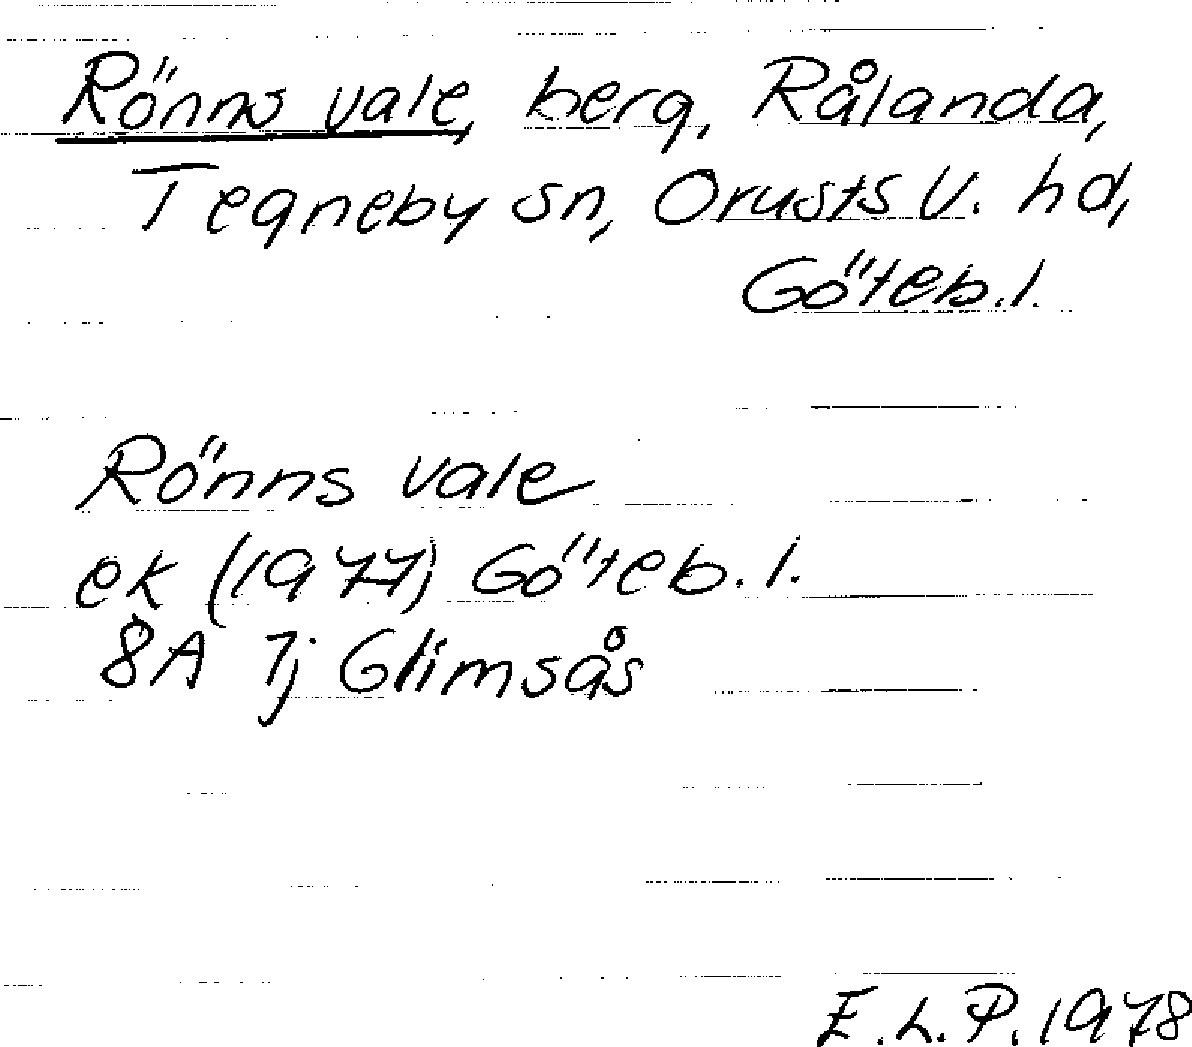 Rönns vale, berg, Rålanda,
Tegneby sn, Orusts V. hd,
Göteb.l.
Rönns vale
ek (1977) Göteb.l.
8A 7j Glimsås
E.L.P. 1978